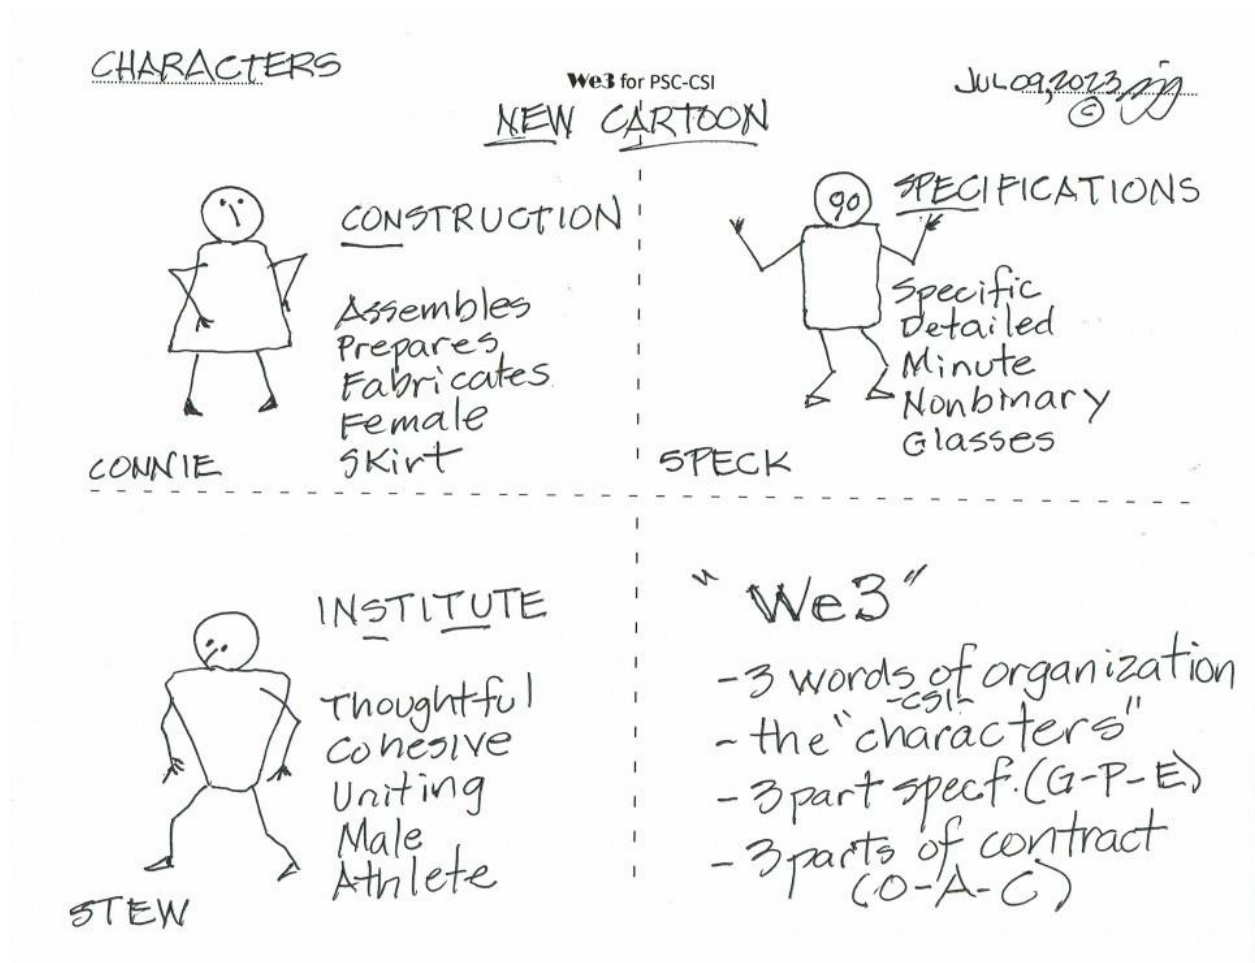 CHARACTERS
We3 for PSC-CSI
NEW CARTOON
JUL 09, 2023
©
CONSTRUCTION
Assembles
Prepares
Fabricates
Female
Skirt
CONNIE
SPECIFICATIONS
Specific
Detailed
Minute
Nonbinary
Glasses
SPECK
INSTITUTE
Thoughtful
Cohesive
Uniting
Male
Athlete
STEW
"We3"
- 3 words of organization
-CSI-
- the "characters"
- 3 part specf. (G-P-E)
- 3 parts of contract
(O-A-C)